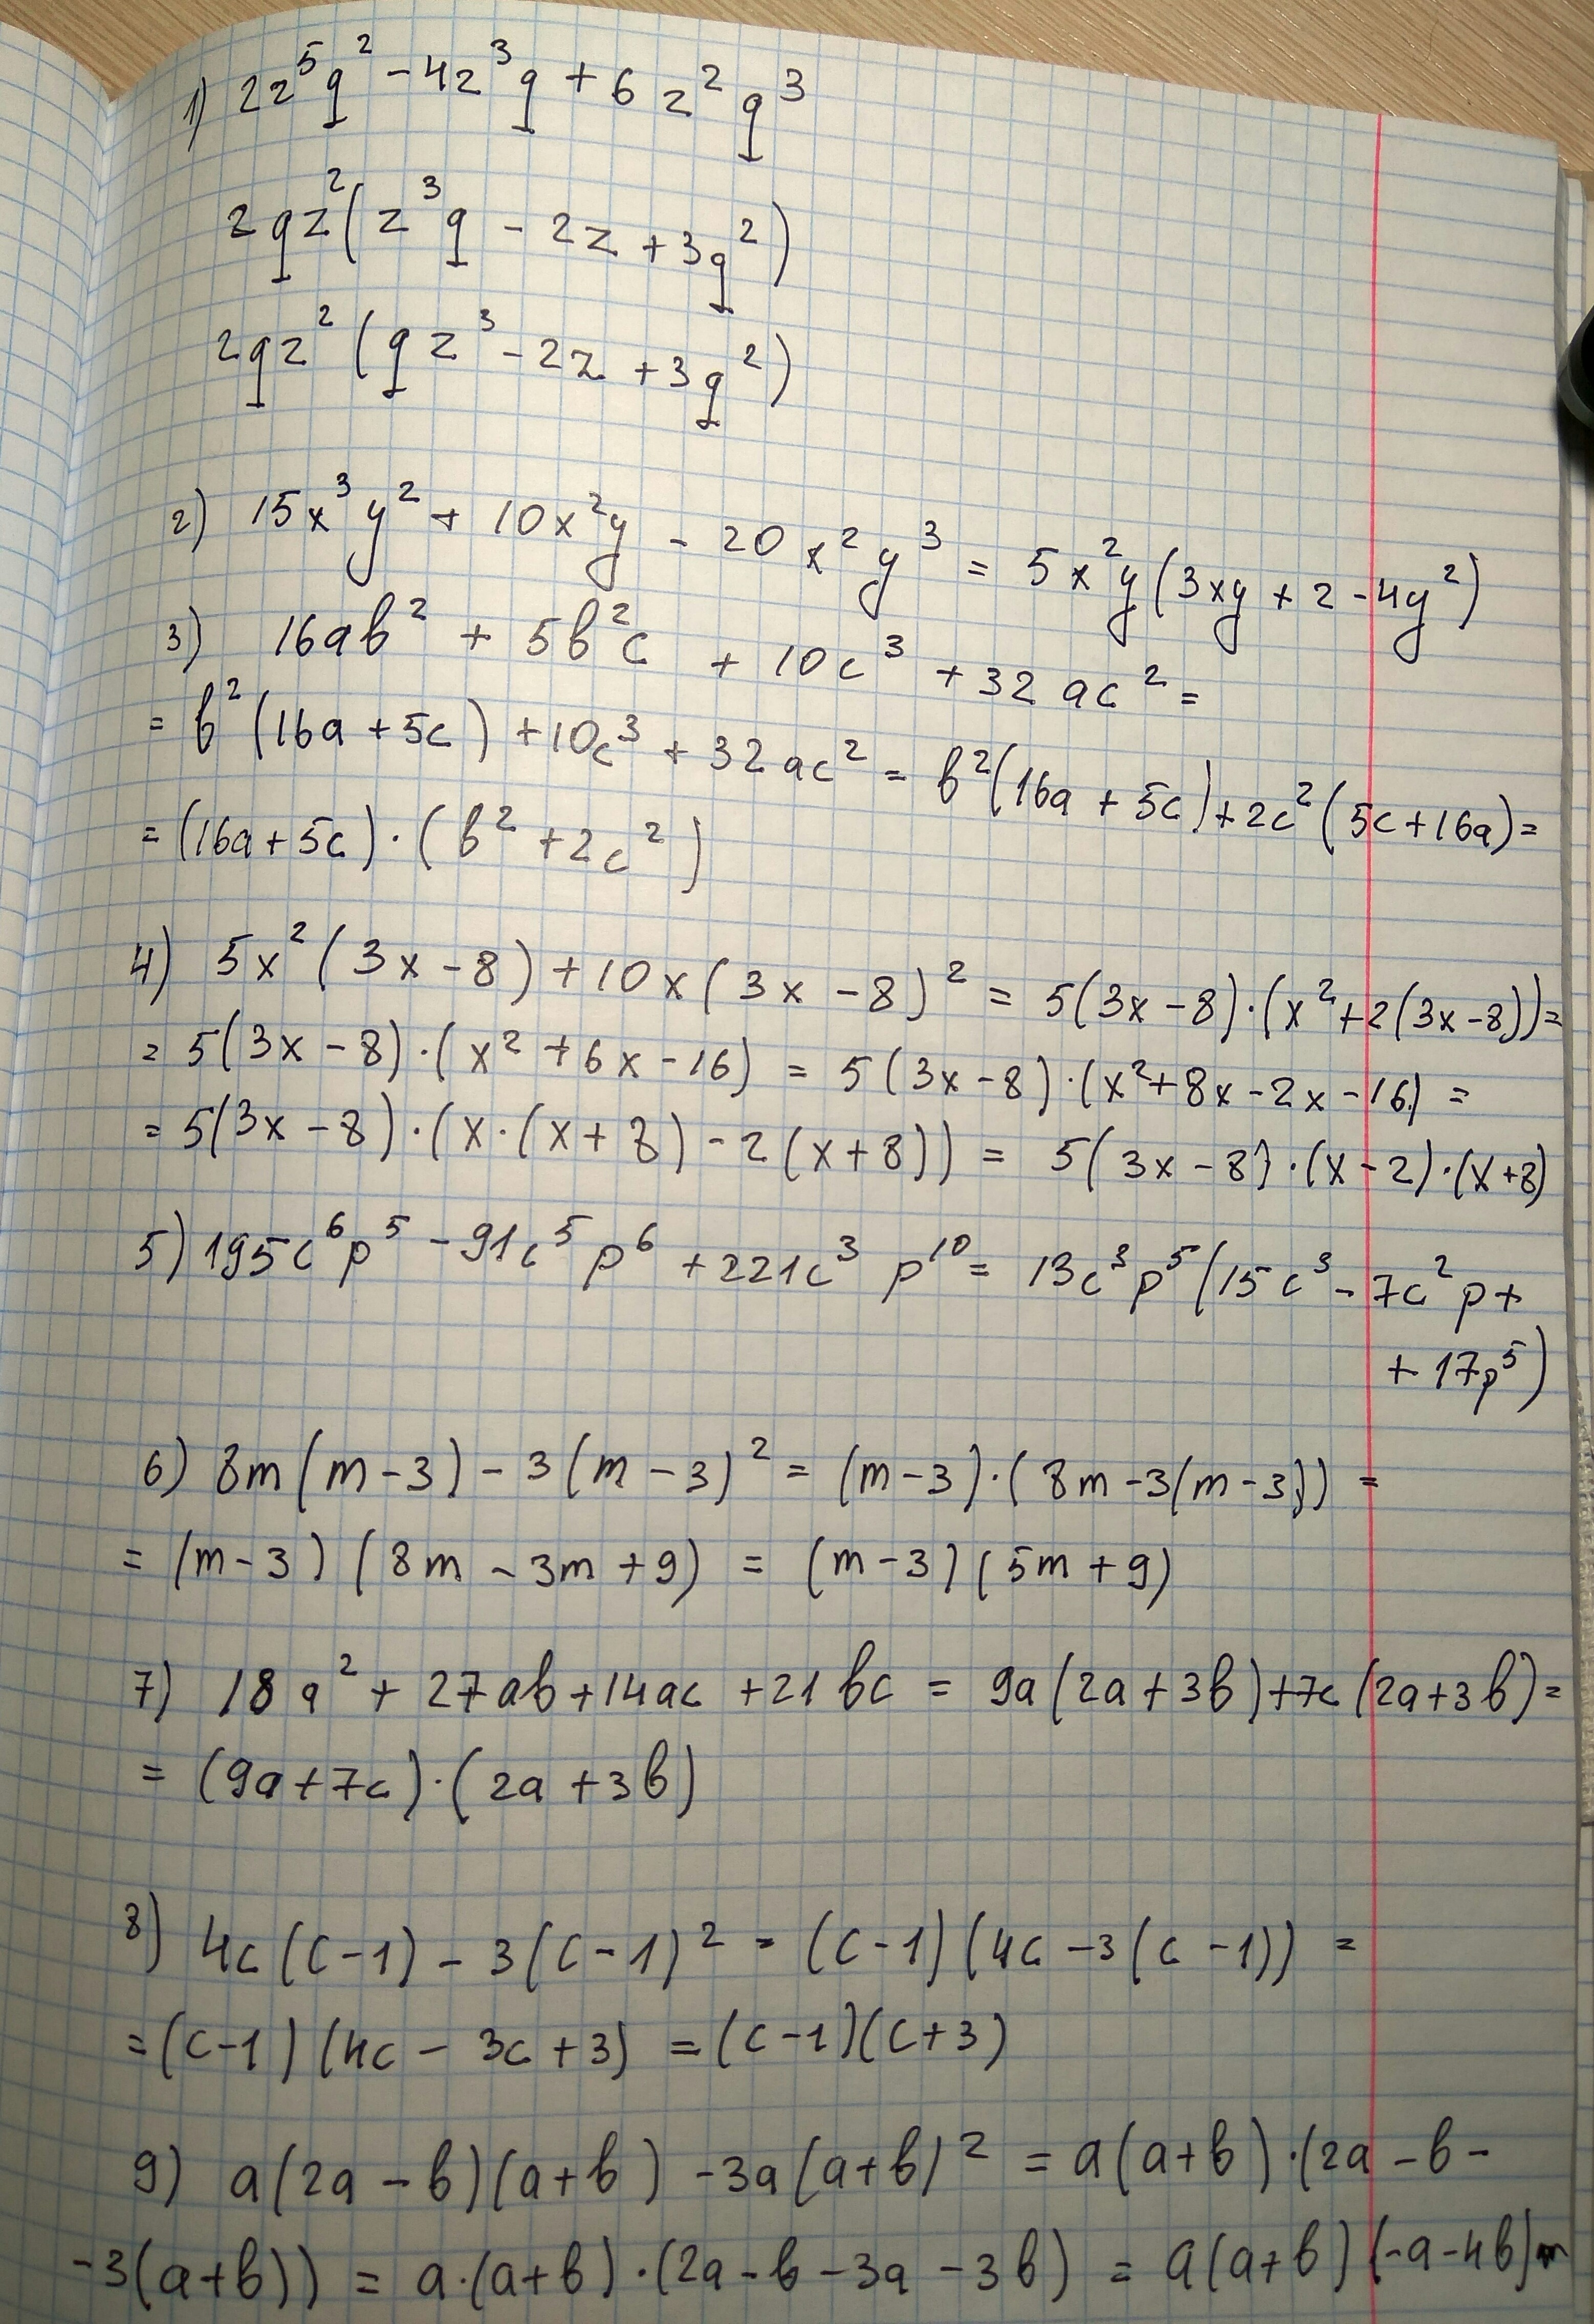 1) 2z⁵q² - 4z³q + 6z²q³
2qz²(z³q - 2z + 3q²)
2qz²(qz³ - 2z + 3q²)
2) 15x³y² + 10x²y - 20x²y³ = 5x²y(3xy + 2 - 4y²)
3) 16ab² + 5b²c + 10c³ + 32ac² =
= b²(16a + 5c) + 10c³ + 32ac² = b²(16a + 5c) + 2c²(5c + 16a) =
= (16a + 5c) · (b² + 2c²)
4) 5x²(3x - 8) + 10x(3x - 8)² = 5(3x - 8) · (x² + 2(3x - 8)) =
= 5(3x - 8) · (x² + 6x - 16) = 5(3x - 8) · (x² + 8x - 2x - 16) =
= 5(3x - 8) · (x · (x + 8) - 2(x + 8)) = 5(3x - 8) · (x - 2) · (x + 8)
5) 195c⁶p⁵ - 91c⁵p⁶ + 221c³p¹⁰ = 13c³p⁵(15c³ - 7c²p +
+ 17p⁵)
6) 8m(m - 3) - 3(m - 3)² = (m - 3) · (8m - 3(m - 3)) =
= (m - 3)(8m - 3m + 9) = (m - 3)(5m + 9)
7) 18a² + 27ab + 14ac + 21bc = 9a(2a + 3b) + 7c(2a + 3b) =
= (9a + 7c) · (2a + 3b)
8) 4c(c - 1) - 3(c - 1)² = (c - 1)(4c - 3(c - 1)) =
= (c - 1)(4c - 3c + 3) = (c - 1)(c + 3)
9) a(2a - b)(a + b) - 3a(a + b)² = a(a + b) · (2a - b -
- 3(a + b)) = a · (a + b) · (2a - b - 3a - 3b) = a(a + b)(-a - 4b)